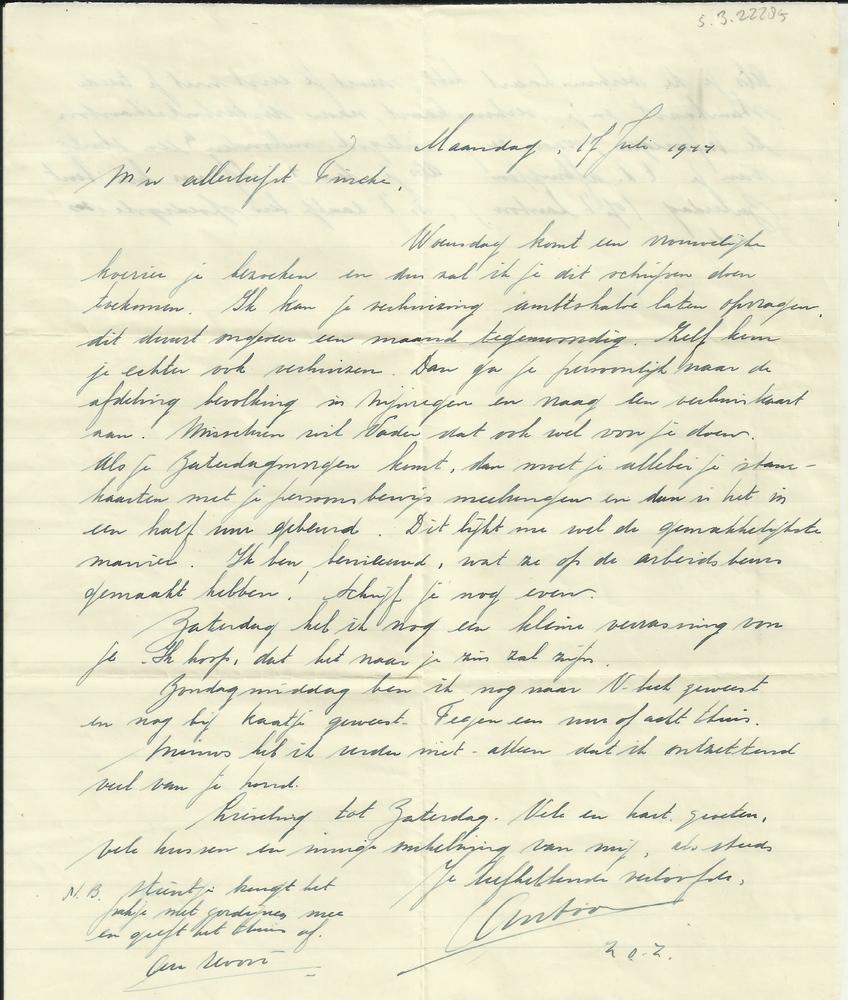 5.3.22285
Maandag, 17 Juli 1944
M'n allerliefst Fineke,
Woensdag komt een vrouwelijke
koerier je bezoeken en dus zal ik je dit schrijven doen
toekomen. Ik kan je verhuizing ambtshalve laten opvragen,
dit duurt ongeveer een maand tegenwoordig. Zelf kun
je echter ook verhuizen. Dan ga je persoonlijk naar de
afdeling bevolking in Nijmegen en vraag een verhuiskaart
aan. Misschien wil Vader dat ook wel voor je doen.
Als je Zaterdagmorgen komt, dan moet je allebei je stam-
kaarten met je persoonsbewijs meebrengen en dan is het in
een half uur gebeurd. Dit lijkt me wel de gemakkelijkste
manier. Ik ben benieuwd, wat ze op de arbeidsbeurs
gemaakt hebben! Schrijf je nog even.
Zaterdag heb ik nog een kleine verrassing voor
je. Ik hoop, dat het naar je zin zal zijn.
Zondagmiddag ben ik nog naar V-beek geweest
en nog bij Kaatje geweest. Tegen een uur of acht thuis.
Nieuws heb ik verder niet - alleen dat ik ontzettend
veel van je houd.
Lieveling tot Zaterdag. Vele en hart. groeten,
vele kussen en innige omhelzing van mij, als steeds
Je liefhebbende verloofde,
N.B. Stientje brengt het
pakje met gordijnen mee
en geeft het thuis af.
Z.O.Z.